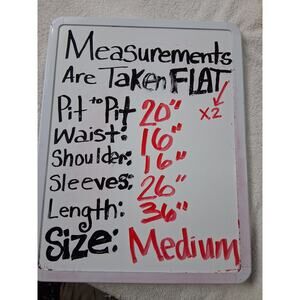 Measurements
Are Taken FLAT
Pit to Pit 20" x2
Waist: 16"
Shoulder: 16"
Sleeves: 26"
Length: 36"
Size: Medium